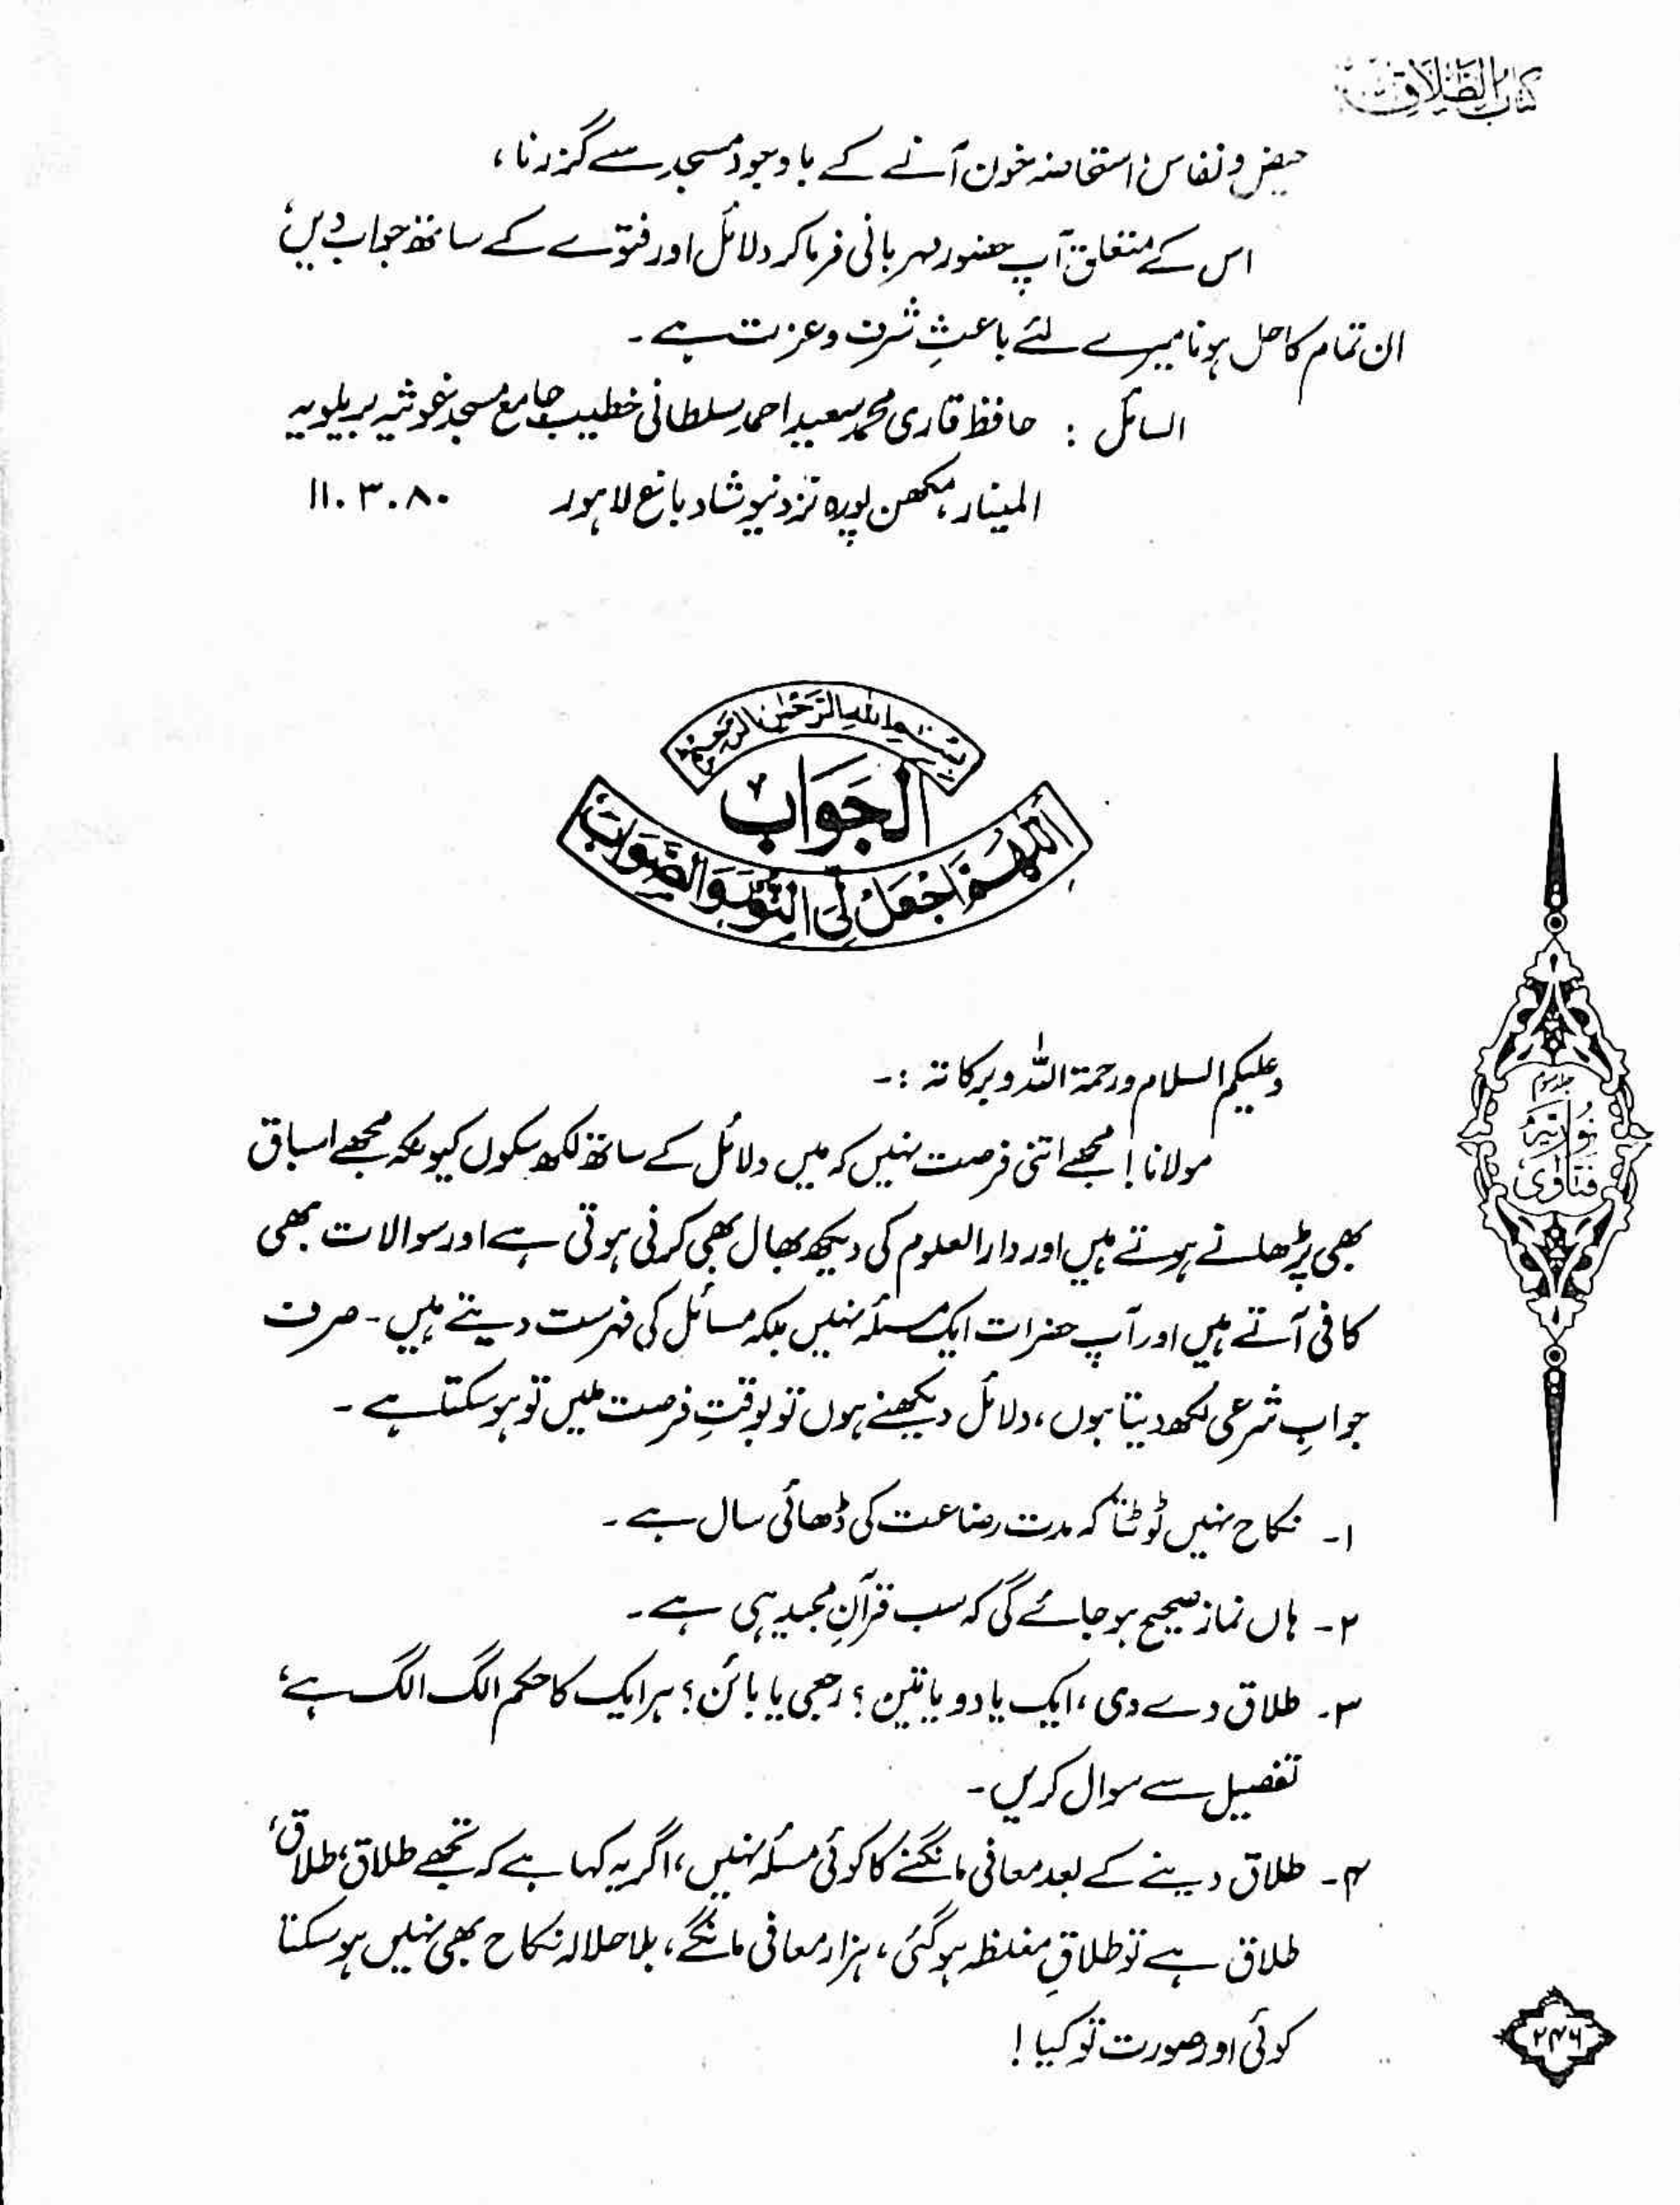 کتاب الطلاق
حیض و نفاس، استحاضہ خون آنے کے باوجود مسجد سے گزرنا،
اس کے متعلق آپ حضور مہربانی فرما کر دلائل اور فتوے کے ساتھ جواب دیں،
ان تمام کا حل ہونا میرے لئے باعثِ شرف و عزت ہے۔
السائل : حافظ قاری محمد سعید احمد سلطانی خطیب جامع مسجد غوثیہ بریلویہ
المینار، مکھن پورہ نزد نیو شاد باغ لاہور ۱۱.۳.۸۰
بِسْمِ اللهِ الرَّحْمٰنِ الرَّحِيْمِ
الجَوَابُ
اَللّٰهُمَّ اجْعَلْ لِّيَ النُّوْرَ وَالصَّوَابَ
وعلیکم السلام ورحمۃ اللہ وبرکاتہ :۔
مولانا! مجھے اتنی فرصت نہیں کہ میں دلائل کے ساتھ لکھ سکوں کیونکہ مجھے اسباق
بھی پڑھانے ہوتے ہیں اور دارالعلوم کی دیکھ بھال بھی کرنی ہوتی ہے اور سوالات بھی
کافی آتے ہیں اور آپ حضرات ایک مسئلہ نہیں بلکہ مسائل کی فہرست دیتے ہیں۔ صرف
جوابِ شرعی لکھ دیتا ہوں، دلائل دیکھنے ہوں تو بوقتِ فرصت ملیں تو ہو سکتا ہے۔
۱۔ نکاح نہیں ٹوٹتا کہ مدت رضاعت کی ڈھائی سال ہے۔
۲۔ ہاں نماز صحیح ہو جائے گی کہ سب قرآنِ مجید ہی ہے۔
۳۔ طلاق دے دی، ایک یا دو یا تین؟ رجعی یا بائن؟ ہر ایک کا حکم الگ الگ ہے،
تفصیل سے سوال کریں۔
۴۔ طلاق دینے کے بعد معافی مانگنے کا کوئی مسئلہ نہیں، اگر یہ کہا ہے کہ تجھے طلاق، طلاق،
طلاق ہے تو طلاقِ مغلظہ ہو گئی، ہزار معافی مانگے، بلا حلالہ نکاح بھی نہیں ہو سکتا
کوئی اور صورت تو کیا!
جلد سوم
فتاویٰ نوریہ
۲۴۶